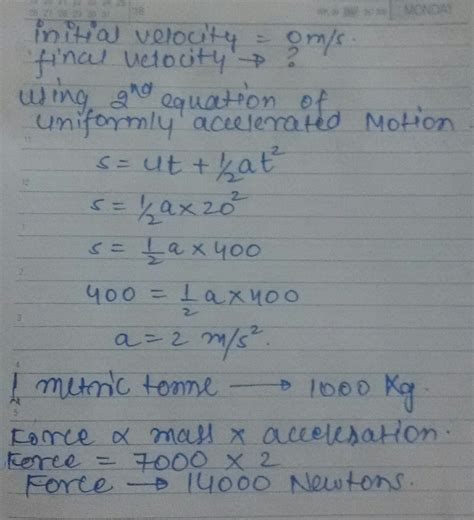 MONDAY
initial velocity = 0m/s.
final velocity → ?
using 2nd equation of
uniformly accelerated Motion
s = ut + ½at²
s = ½a × 20²
s = ½a × 400
400 = ½a × 400
a = 2 m/s².
1 metric tonne → 1000 Kg.
Force ∝ mass × acceleration.
Force = 7000 × 2
Force → 14000 Newtons.